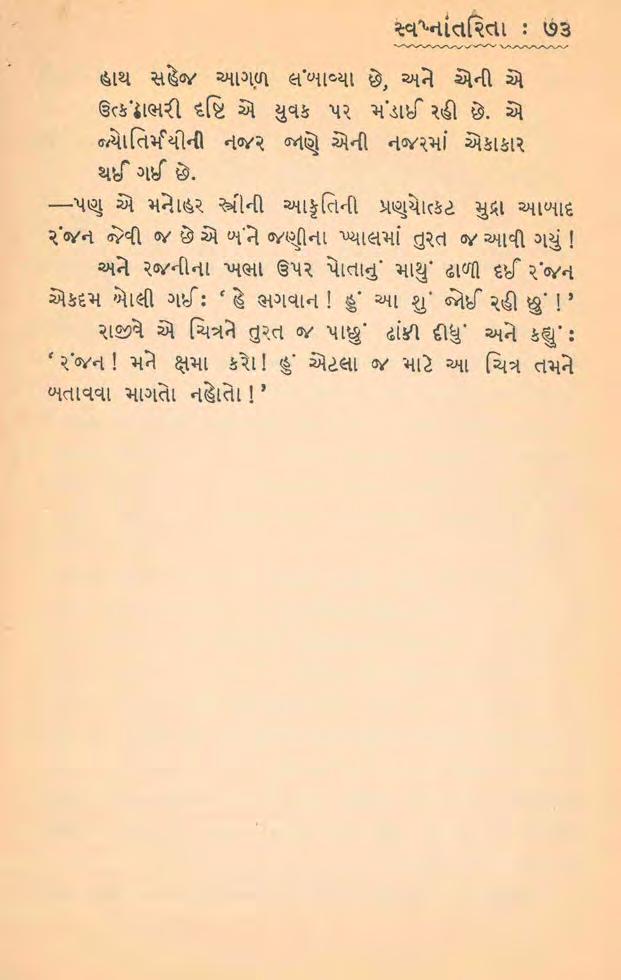 સ્વપ્નાંતરિતા : ૭૩
હાથ સહેજ આગળ લંબાવ્યા છે, અને એની એ
ઉત્કંઠાભરી દૃષ્ટિ એ યુવક પર મંડાઈ રહી છે. એ
જ્યોતિર્મયીની નજર જાણે એની નજરમાં એકાકાર
થઈ ગઈ છે.
—પણ એ મનોહર સ્ત્રીની આકૃતિની પ્રણયોત્કટ મુદ્રા આબાદ
રંજન જેવી જ છે એ બંને જણીના ખ્યાલમાં તુરત જ આવી ગયું !
અને રજનીના ખભા ઉપર પોતાનું માથું ઢાળી દઈ રંજન
એકદમ બોલી ગઈ : ‘ હે ભગવાન ! હું આ શું જોઈ રહી છું ! ’
રાજીવે એ ચિત્રને તુરત જ પાછું ઢાંકી દીધું અને કહ્યું :
‘ રંજન ! મને ક્ષમા કરો ! હું એટલા જ માટે આ ચિત્ર તમને
બતાવવા માગતો નહોતો ! ’